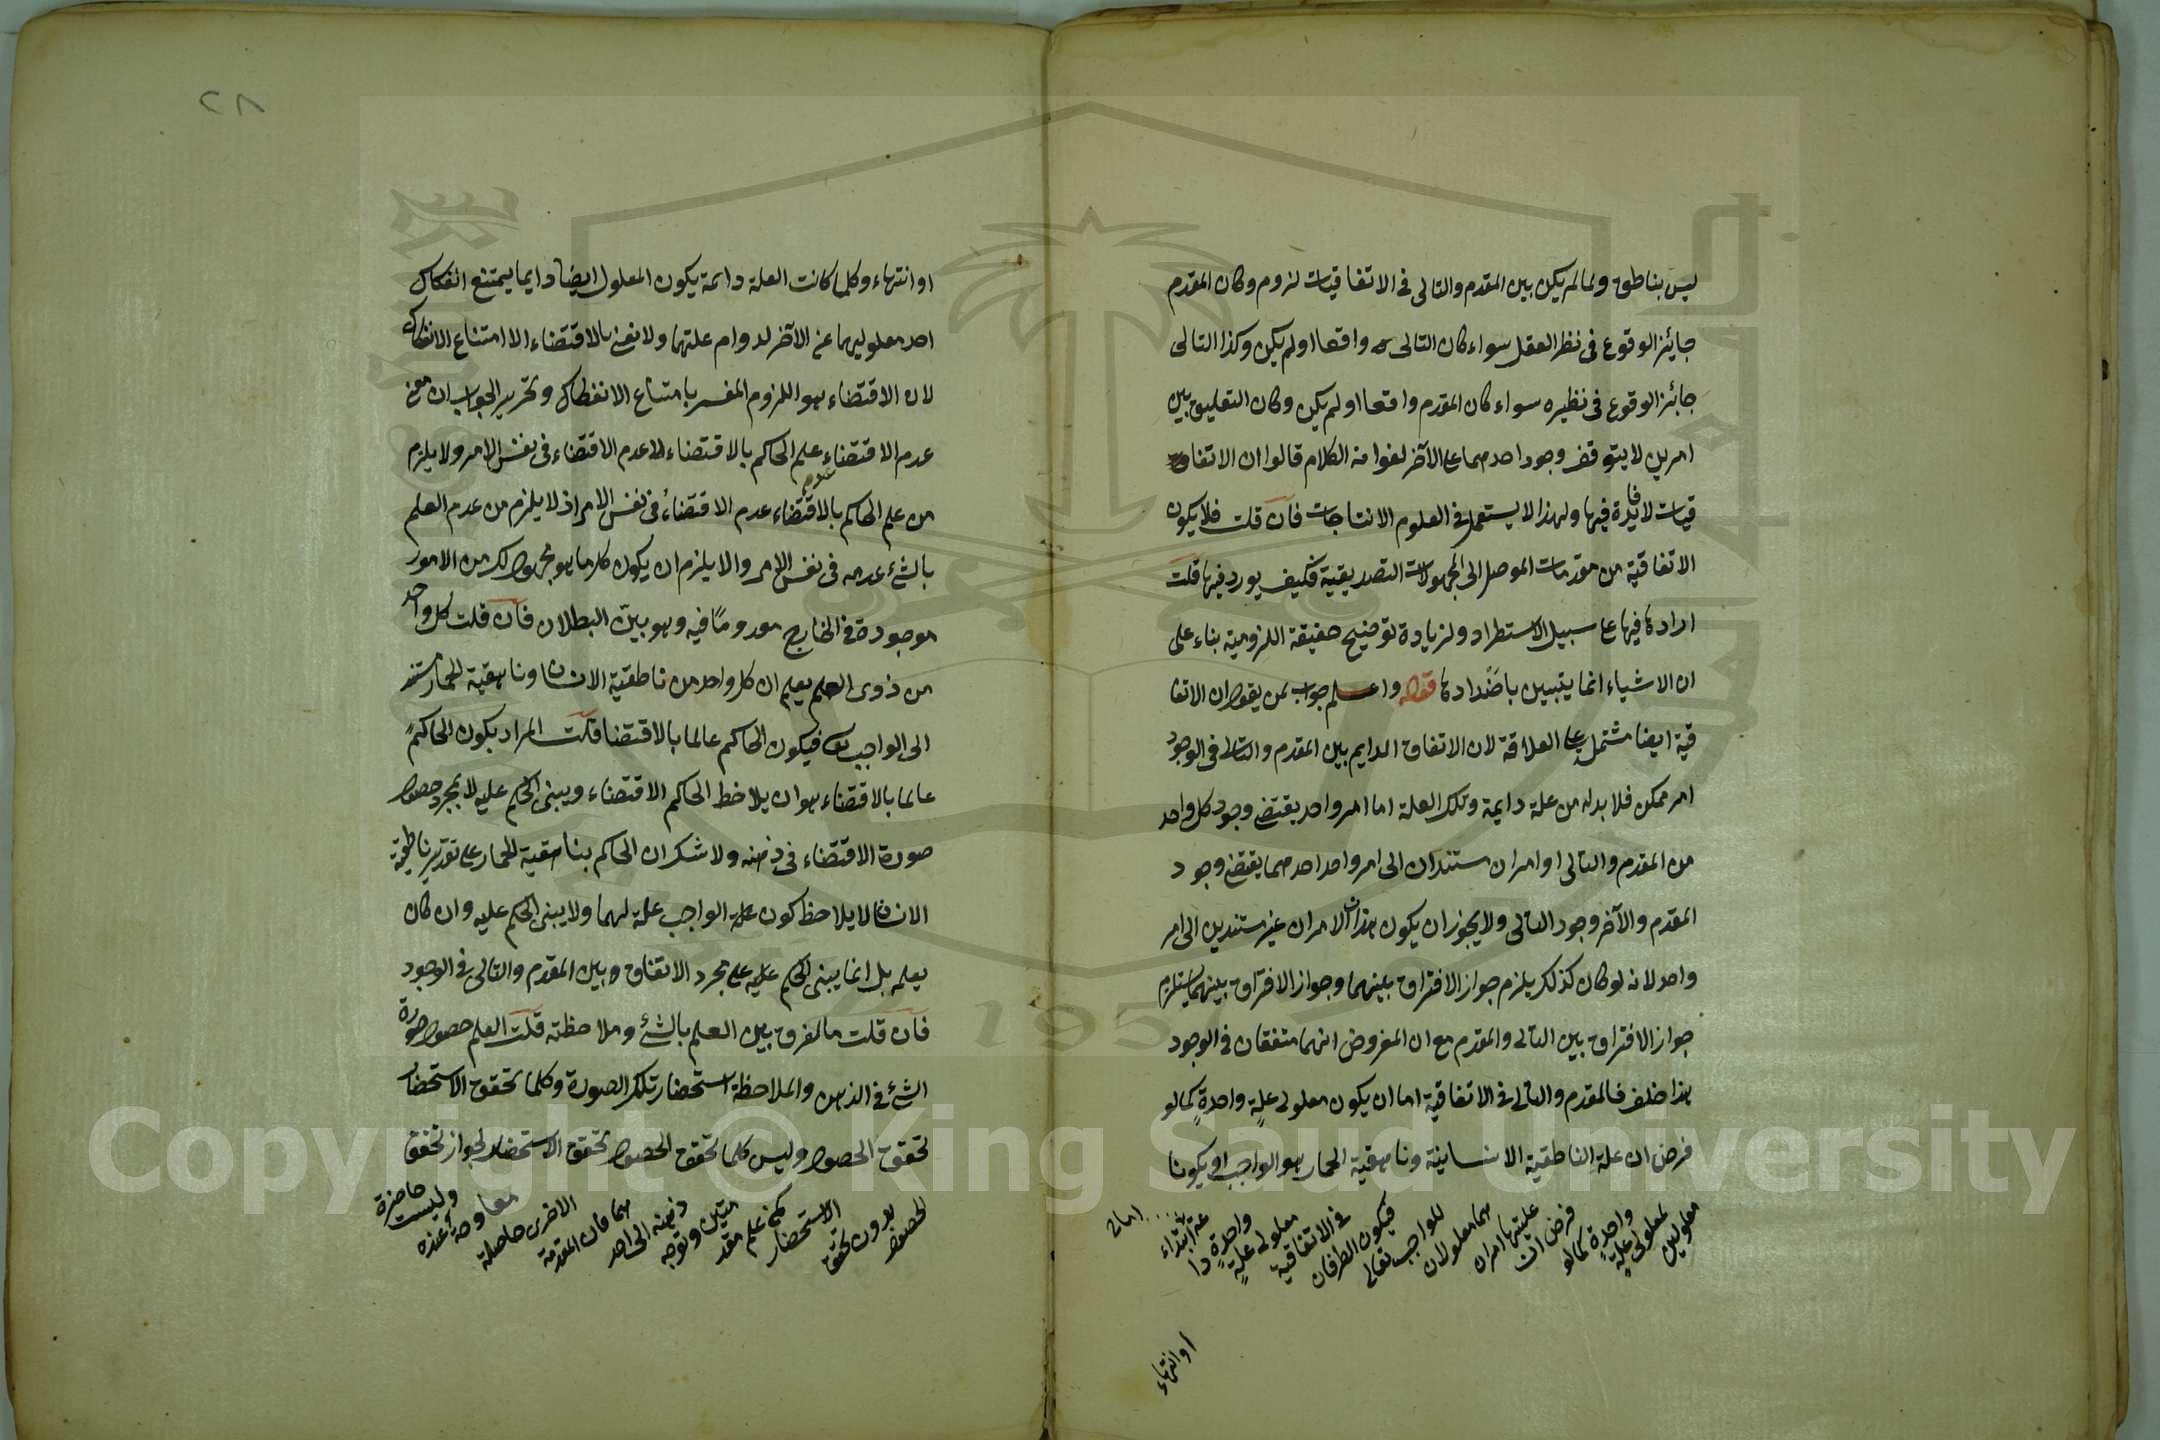 ليس بناطق ولما لم يكن بين المقدم والتالى فى الاتفاقيات لزوم وكان المقدم
جايز الوقوع فى نظر العقل سواء كان التالى واقعا اولم يكن وكذا التالى
جائز الوقوع فى نظيره سواء كان المقدم واقعا اولم يكن وكان التعليق بين
امرين لا يتوقف وجود احدهما على الآخر لغوا من الكلام قالوا ان الاتفا
قيات لا فايدة فيها ولهذا لا يستعمل فى العلوم الانتاجات فان قلت فلا يكون
الاتفاقية من مقدمات الموصل الى المجهولات التصديقية فكيف يورد فيها قلت
ايرادها فيها على سبيل الاستطراد ولزيادة توضيح حقيقة اللزومية بناء على
ان الاشياء انما يتبين باضدادها قوله واعلم جواب لمن يقول ان الاتفا
قية ايضا مشتمل على العلاقة لان الاتفاق الدايم بين المقدم والتالى فى الوجود
امر ممكن فلا بد له من علة دايمة وتلك العلة اما امر واحد يقتضى وجود كل واحد
من المقدم والتالى او امران مستندان الى امر واحد احدهما يقتضى وجود
المقدم والآخر وجود التالى ولا يجوز ان يكون هذان الامران غير مستندين الى امر
واحد لانه لو كان كذلك يلزم جواز الافتراق بينهما وجواز الافتراق بينهما يستلزم
جواز الافتراق بين التالى والمقدم مع ان المفروض انهما متفقان فى الوجود
هذا خلف فالمقدم والتالى فى الاتفاقية اما ان يكون معلولى علة واحدة كما لو
فرض ان علة الناطقية الانسانية وناهقية الحمار هو الواجب او يكونا
معلولين
لمعلولى علة
واحدة كما لو
فرض ان
علتهما امران
هما معلولان
للواجب تعالى
فيكون الطرفان
فى الاتفاقية
معلولى علة
واحدة
ابتداء
او انتهاء
٢٨
او انتهاء وكلما كانت العلة دائمة يكون المعلول ايضا دايما يمتنع انفكاك
احد معلوليهما عن الآخر لدوام علتهما ولا نعنى بالاقتضاء الا امتناع الانفكاك
لان الاقتضاء هو اللزوم المفسر بامتناع الانفكاك وتحرير الجواب ان معنى
عدم الاقتضاء علم الحاكم بالاقتضاء لا عدم الاقتضاء فى نفس الامر ولا يلزم
عدم
من علم الحاكم بالاقتضاء عدم الاقتضاء فى نفس الامر اذ لا يلزم من عدم العلم
بالشئ عدمه فى نفس الامر والا يلزم ان يكون كل ما هو مجهول لك من الامور
موجودة فى الخارج معدوما فيه وهو بين البطلان فان قلت كل واحد
من ذوى العلم يعلم ان كل واحد من ناطقية الانسان وناهقية الحمار مستند
الى الواجب تع فيكون الحاكم عالما بالاقتضا قلت المراد بكون الحاكم
عالما بالاقتضاء هو ان يلاحظ الحاكم الاقتضاء ويبنى الحكم عليه لا بمجرد حصول
صورة الاقتضاء فى ذهنه ولا شك ان الحاكم بناهقية الحمار على تقدير ناطقية
الانسان لا يلاحظ كون علة الواجب علة لهما ولا يبنى الحكم عليه وان كان
يعلمه بل انما يبنى الحكم عليه على مجرد الاتفاق وبين المقدم والتالى فى الوجود
فان قلت ما الفرق بين العلم بالشئ وملاحظته قلت العلم حصول صورة
الشئ فى الذهن والملاحظة استحضار تلك الصورة وكلما تحقق الاستحضار
تحقق الحصول وليس كلما تحقق الحصول تحقق الاستحضار لجواز تحقق
الحصول
بدون تحقق
الاستحضار
كمن علم مقد
متين وتوجه
ذهنه الى احد
هما فان المقدمة
الاخرى حاصلة
معلومة عنده
وليست حاضرة
Copyright © King Saud University
1957